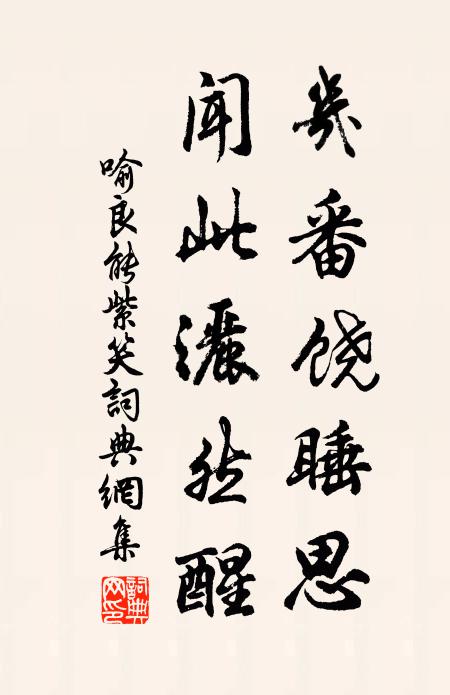 幾番饶睡思
聞此灑然醒
喻良能紫笑詞典網集
詞典網印